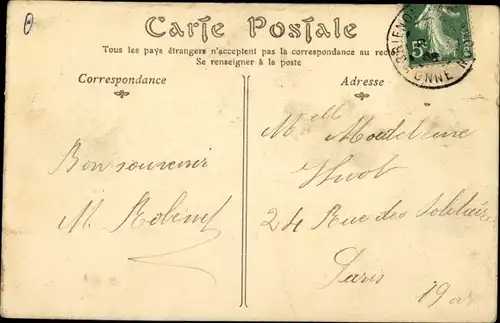 Carte Postale
Tous les pays étrangers n'acceptent pas la correspondance au rec
Se renseigner à la poste
Correspondance
Adresse
5c
BRIENO
YONNE
Melle Madeleine
Huot
24 Rue des Solitaires
Paris
19
Bon souvenir
M. Robinet